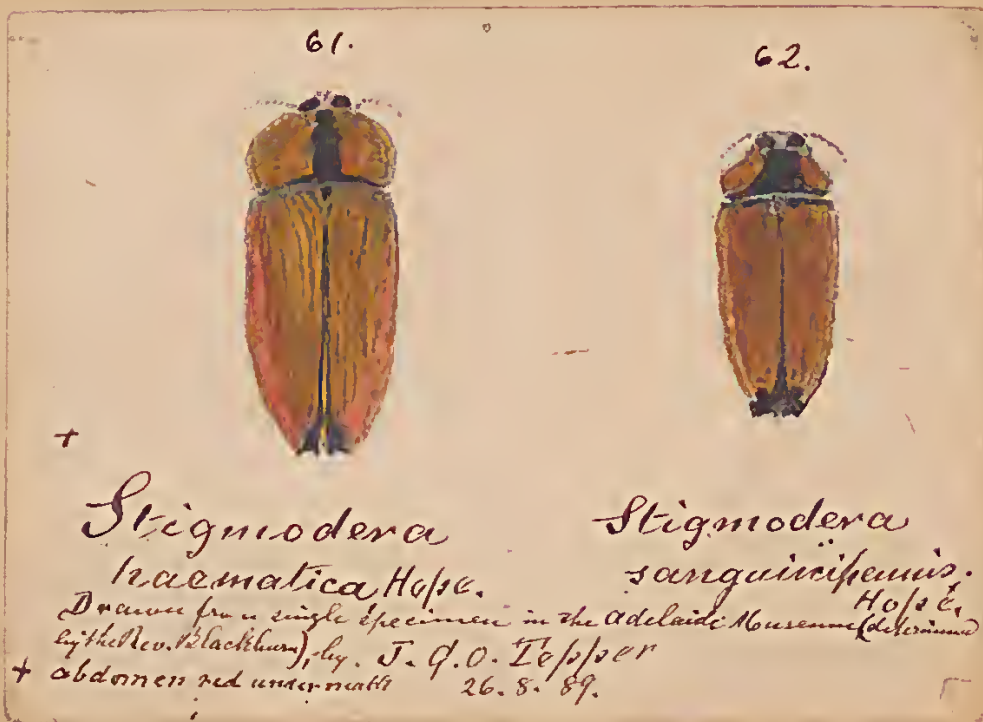 61.
62.
+
Stigmodera
haematica, Hope.
Stigmodera
sanguinipennis,
Hope,
Drawn from single specimen in the Adelaide Museum (determined
by the Rev. Blackburn), by J. G. O. Tepper
+ abdomen red underneath 26. 8. 89.